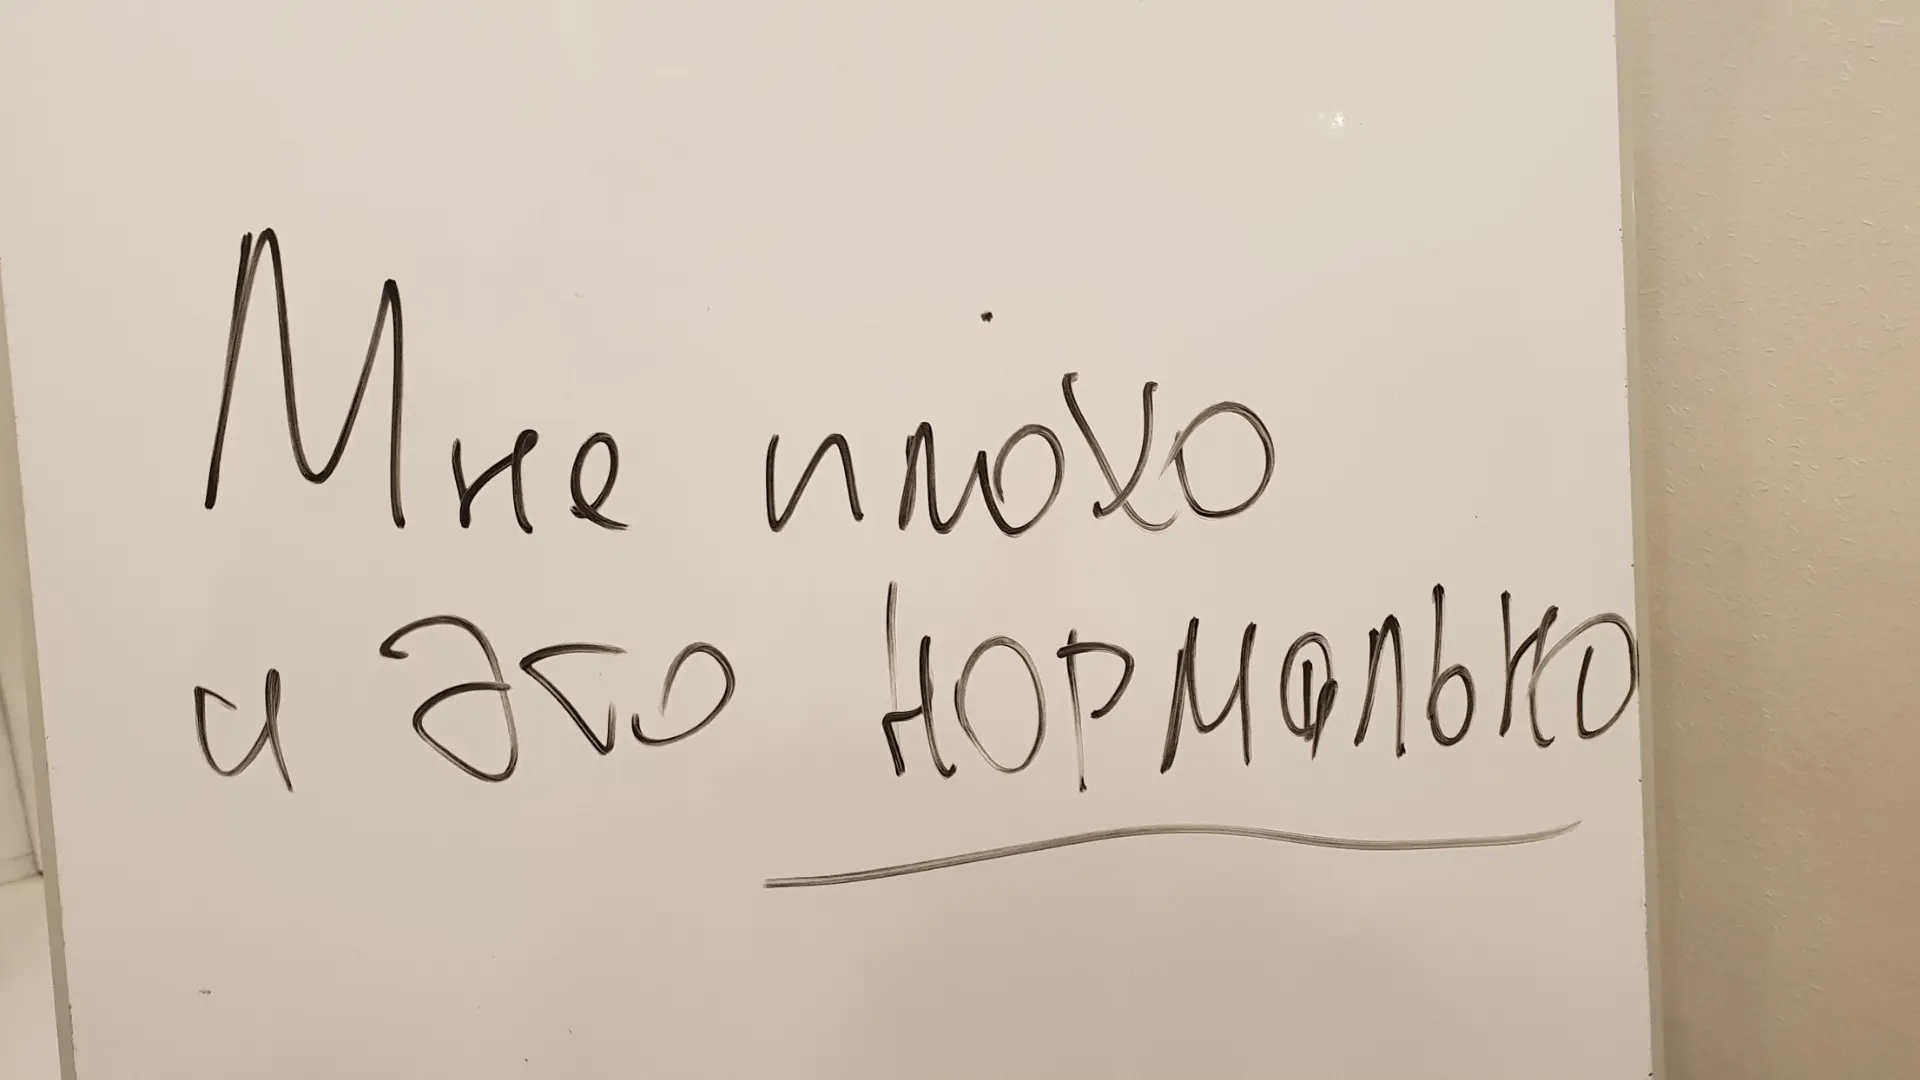 Мне плохо
и это нормально